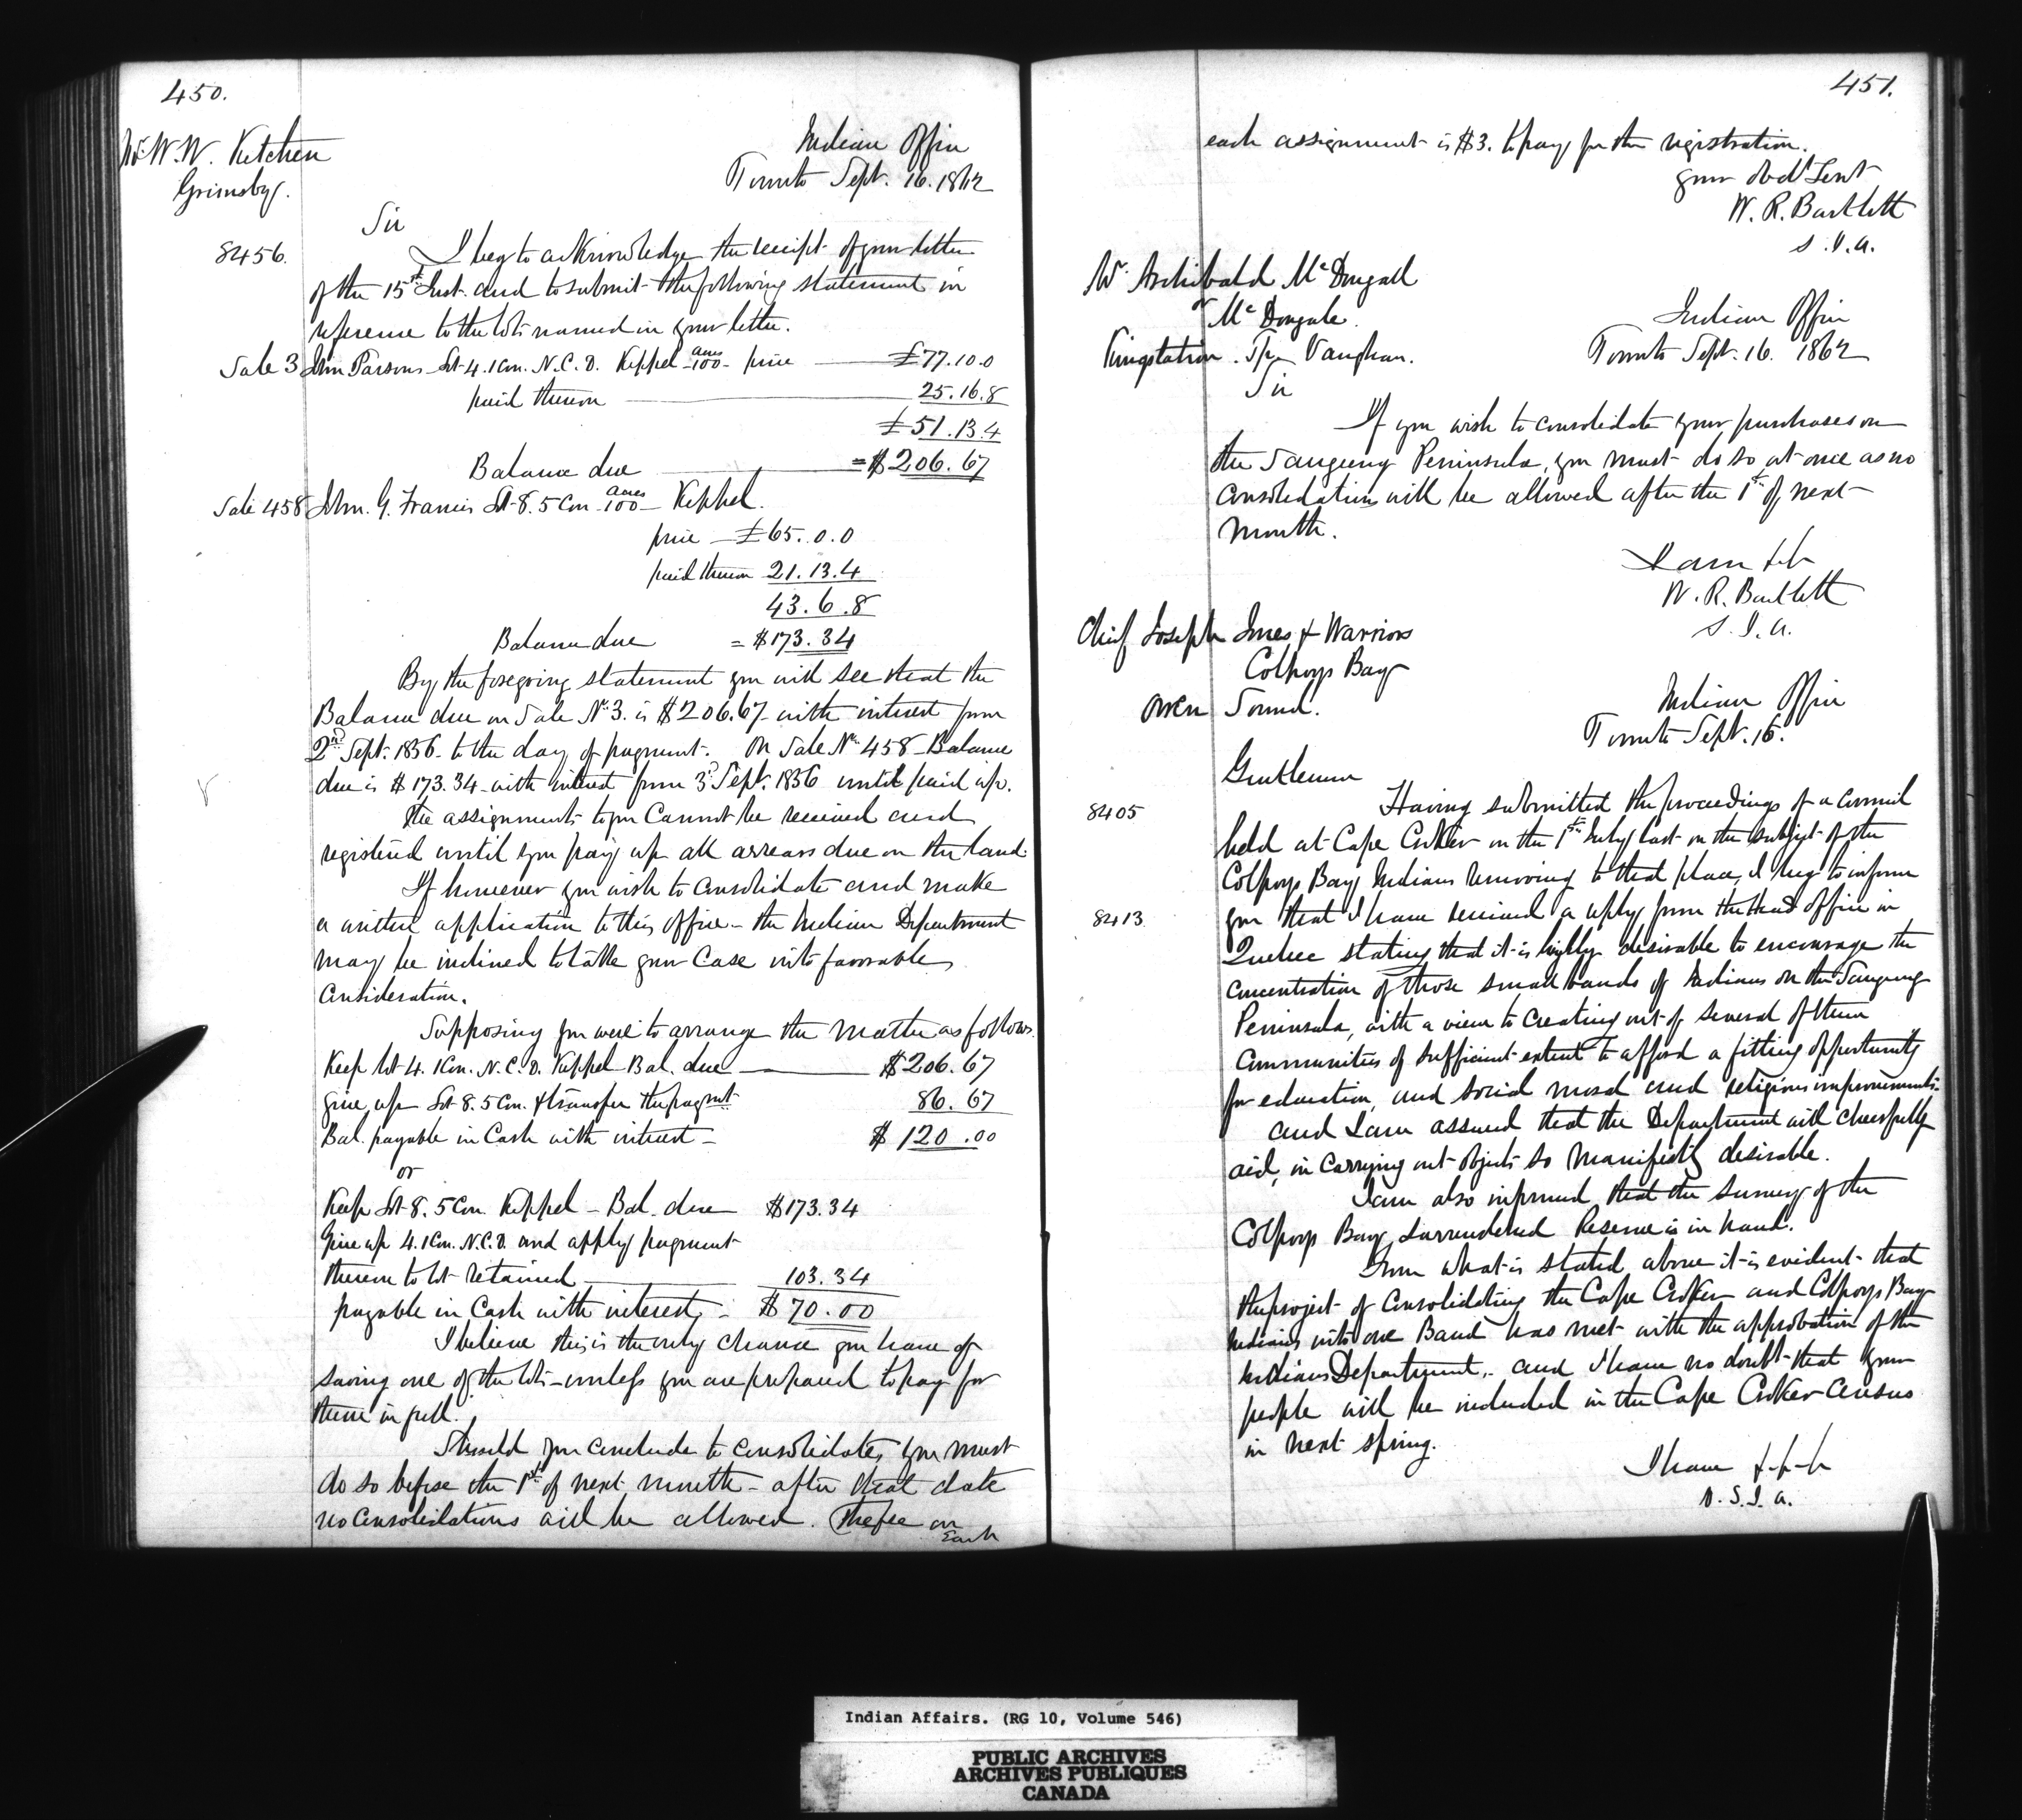 450.
Mr. W. W. Kitchen
Grimsby.
Indian Office
Toronto Sept. 16. 1862
Sir
8456.
I beg to acknowledge the receipt of your letter
of the 15th Inst. and to submit the following statement in
reference to the lots named in your letter.
Sale 3 John Parsons Lot 4. 1 Con. N.C.D. Keppel 100 acres price £77.10.0
paid thereon 25.16.8
£51.13.4
Balance due = $206.67
Sale 458 John. G. Francis Lot 8. 5 Con 100 acres Keppel.
price £65.0.0
paid thereon 21.13.4
43.6.8
Balance due = $173.34
By the foregoing statement you will see that the
Balance due on Sale No. 3. is $206.67 with interest from
2nd Sept. 1856 to the day of payment. On Sale No. 458 Balance
due is $173.34 with interest from 3d Sept. 1856 until paid up.
The assignments to you Cannot be received and
registered until you pay up all arrears due on the land.
If however you wish to Consolidate and make
a written application to this Office - the Indian Department
may be inclined to take your Case into favorable
Consideration.
Supposing you were to arrange the matter as follows
Keep lot 4. 1 Con. N.C.D. Keppel Bal. due $206.67
give up Lot 8. 5 Con. & transfer the paymt 86.67
Bal. payable in Cash with interest - $120.00
or
Keep Lot 8. 5 Con. Keppel - Bal. due $173.34
Give up 4. 1 Con. N.C.D. and apply payment
thereon to lot retained 103.34
payable in Cash with interest - $70.00
I believe this is the only chance you have of
saving one of the lots - unless you are prepared to pay for
them in full.
Should you conclude to consolidate, you must
do so before the 1st of next month - after that date
no Consolidations will be allowed. The fee on
Each
451.
each assignment is $3. to pay for the registration.
Your Obdt Servt
W. R. Bartlett
S.I.A.
Mr. Archibald McDougall
or McDougale.
Tp Vaughan.
Indian Office
Toronto Sept. 16. 1862
Sir
If you wish to consolidate your purchases on
the Saugeeng Peninsula, you must do so at once as no
Consolidation will be allowed after the 1st of next
month.
I am &c
W. R. Bartlett
S.I.A.
Chief Joseph Jones & Warriors
Colpoys Bay
Owen Sound.
Indian Office
Toronto Sept. 16.
Gentlemen
8405
Having submitted the proceedings of a Council
held at Cape Croker on the 1st July last on the subject of the
Colpoys Bay Indians removing to that place, I beg to inform
8413
you that I have received a reply from the Head Office in
Quebec stating that it is highly desirable to encourage the
Concentration of those small bands of Indians on the Saugeeng
Peninsula, with a view to Creating out of several of them
Communities of sufficient extent to afford a fitting opportunity
for education, and social moral and religious improvements -
and I am assured that the Department will cheerfully
aid, in Carrying out objects so manifestly desirable.
I am also informed that the Survey of the
Colpoys Bay Surrendered Reserve is in hand.
From what is stated above it is evident that
the project of Consolidating the Cape Croker and Colpoys Bay
Indians into one Band has met with the approbation of the
Indian Department, and I have no doubt that your
people will be included in the Cape Croker Census
in next spring.
I have &c &c
V.S.I.A.
Indian Affairs. (RG 10, Volume 546)
PUBLIC ARCHIVES
ARCHIVES PUBLIQUES
CANADA